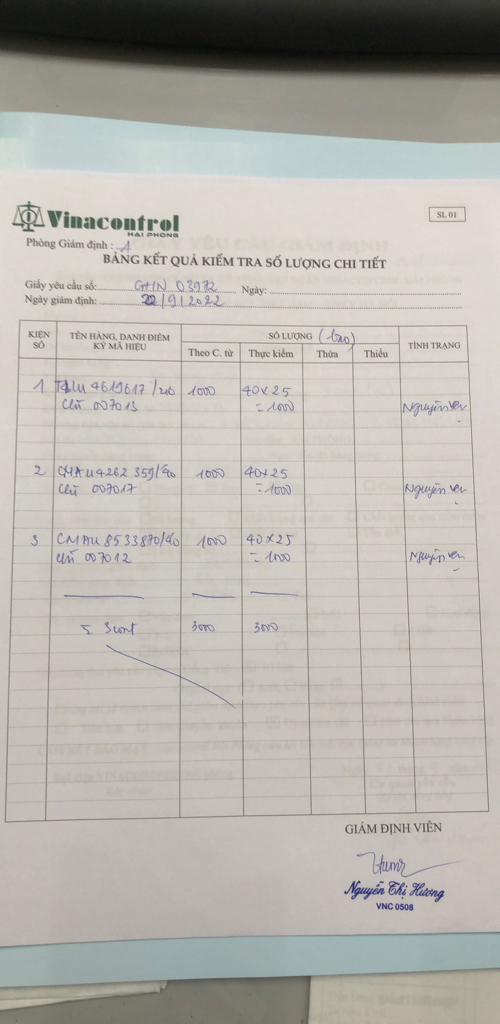 Vinacontrol
HAI PHONG
SL 01
Phòng Giám định : A
BẢNG KẾT QUẢ KIỂM TRA SỐ LƯỢNG CHI TIẾT
Giấy yêu cầu số: GHN 03972 Ngày:
Ngày giám định: 22/9/2022
KIỆN SỐ TÊN HÀNG, DANH ĐIỂM KÝ MÃ HIỆU SỐ LƯỢNG (bao) TÌNH TRẠNG
Theo C. từ Thực kiểm Thừa Thiếu
1 4619617 / 1000 40 x 25
chì 007013 = 1000 Nguyên vẹn
2 CMAU 4262 359/40 1000 40 x 25
chì 007017 = 1000 Nguyên vẹn
3 CMAU 8533870/40 1000 40 x 25
chì 007012 = 1000 Nguyên vẹn
Σ 3cont 3000 3000
GIÁM ĐỊNH VIÊN
Nguyễn Thị Hương
VNC 0508